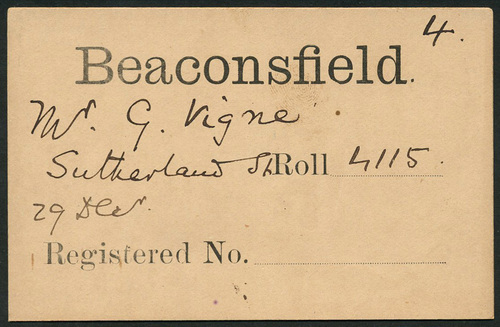 4.
Beaconsfield.
Mr. G. Vigne
Sutherland St Roll 4115.
29 Decr.
Registered No.